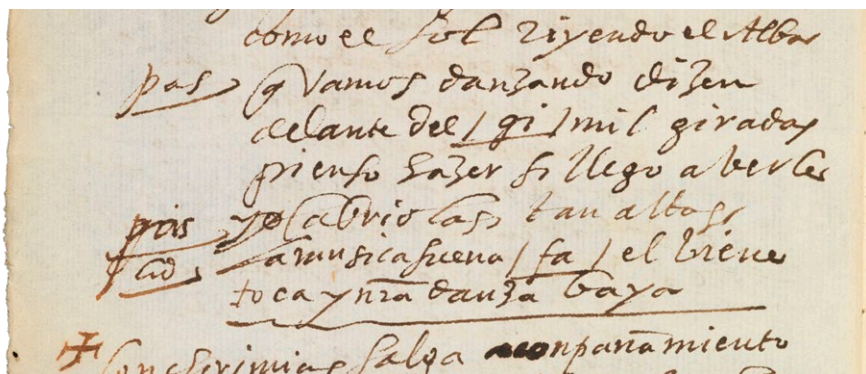 como el sol riyendo el Alba
pas q vamos danzando dizen
delante del / gi / mil giradas
pienso hazer si llego a verle
yo cabriolas tan altas
la musica suena / fa / el viene
toca y nra danza baya
Con chirimias salga aconpañamiento